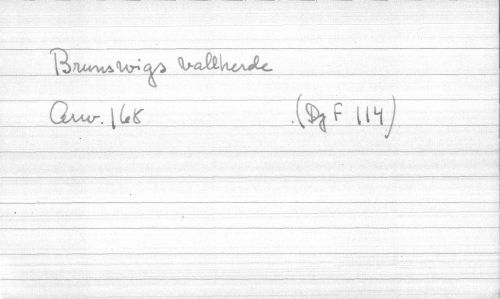 Brunswigs vallherde
Arw. 168 (Dg F 114)